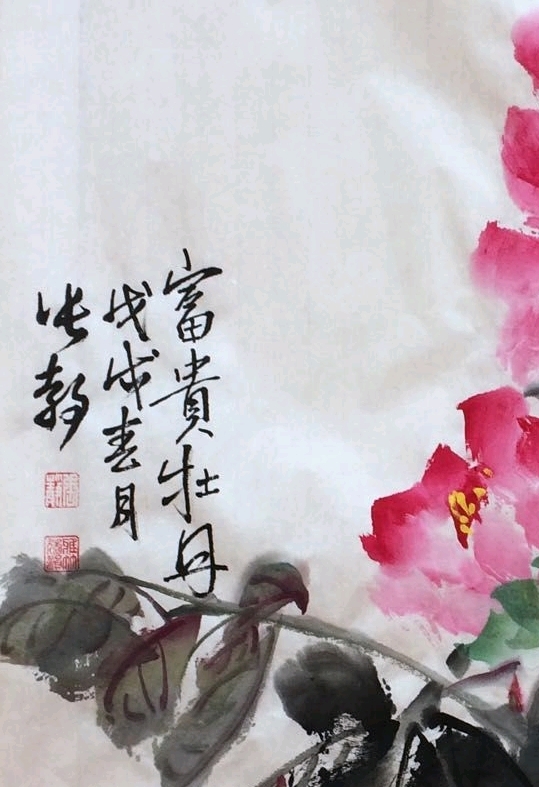 富貴牡丹
戊戌春月